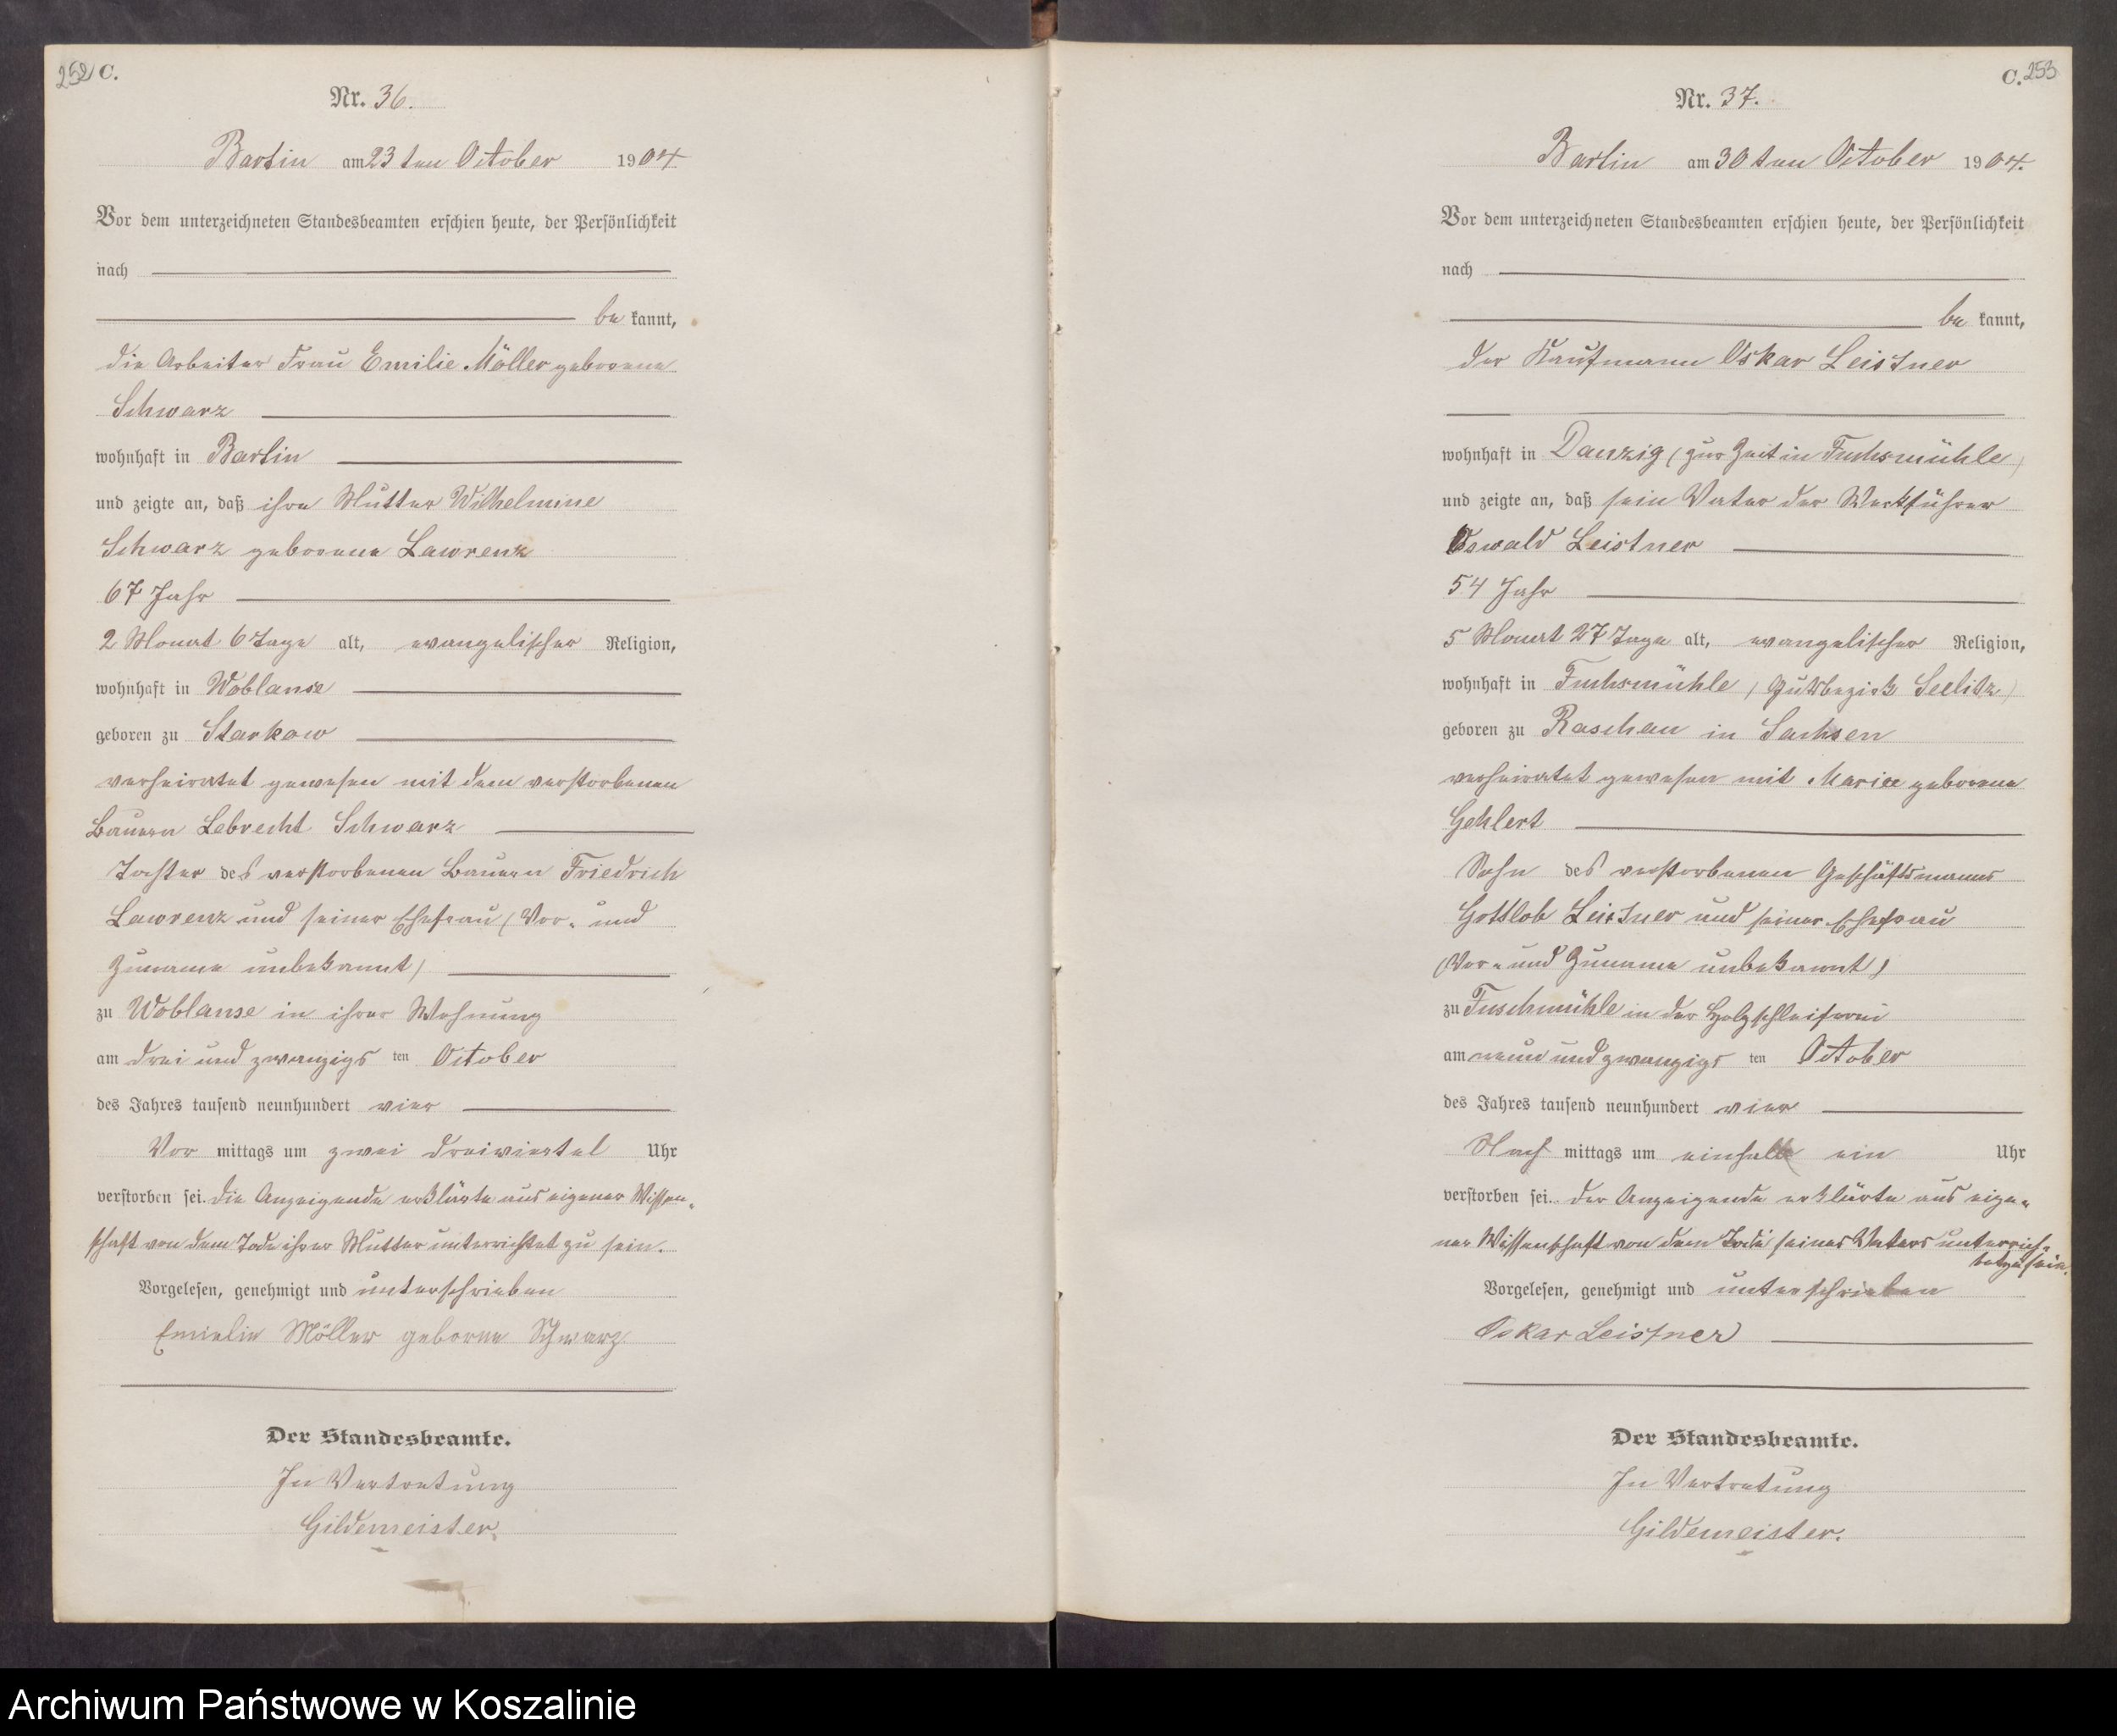 252 C.
Nr. 36.
Bartin am 23ten October 1904.
Vor dem unterzeichneten Standesbeamten erschien heute, der Persönlichkeit
nach
be kannt,
die Arbeiter Frau Emilie Möller geborene
Schwarz
wohnhaft in Bartin
und zeigte an, daß ihre Mutter Wilhelmine
Schwarz geborene Lawrenz
67 Jahr
2 Monat 6 Tage alt, evangelischer Religion,
wohnhaft in Woblanse
geboren zu Starkow
verheiratet gewesen mit dem verstorbenen
Bauern Lebrecht Schwarz
Tochter des verstorbenen Bauern Friedrich
Lawrenz und seiner Ehefrau (Vor- und
Zuname unbekannt)
zu Woblanse in ihrer Wohnung
am drei und zwanzigs ten October
des Jahres tausend neunhundert vier
Vor mittags um zwei dreiviertel Uhr
verstorben sei. Die Anzeigende erklärte aus eigener Wissen-
schaft von dem Tode ihrer Mutter unterrichtet zu sein.
Vorgelesen, genehmigt und unterschrieben
Emielie Möller geborne Schwarz
Der Standesbeamte.
In Vertretung
Gildemeister.
C. 253
Nr. 37.
Bartin am 30ten October 1904.
Vor dem unterzeichneten Standesbeamten erschien heute, der Persönlichkeit
nach
be kannt,
der Kaufmann Oskar Leistner
wohnhaft in Danzig (zur Zeit in Fuchsmühle)
und zeigte an, daß sein Vater der Werkführer
Oswald Leistner
54 Jahr
5 Monat 27 Tage alt, evangelischer Religion,
wohnhaft in Fuchsmühle (Gutsbezirk Seelitz)
geboren zu Raschau in Sachsen
verheiratet gewesen mit Marie geborene
Gehlert
Sohn des verstorbenen Geschäftsmanns
Gottlob Leistner und seiner Ehefrau
(Vor- und Zuname unbekannt)
zu Fuschmühle in der Holzschleiferei
am neun und zwanzigs ten October
des Jahres tausend neunhundert vier
Nach mittags um einhalb ein Uhr
verstorben sei. Der Anzeigende erklärte aus eige-
ner Wissenschaft von dem Tode seines Vaters unterrich-
tet zu sein.
Vorgelesen, genehmigt und unterschrieben
Oskar Leistner
Der Standesbeamte.
In Vertretung
Gildemeister.
Archiwum Państwowe w Koszalinie